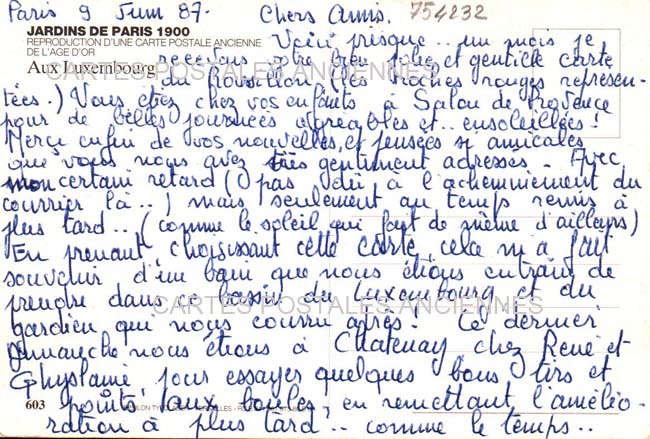 Paris 9 Juin 87.
Chers Amis.
754232
JARDINS DE PARIS 1900
REPRODUCTION D'UNE CARTE POSTALE ANCIENNE
DE L'AGE D'OR
Aux Luxembourg
Voici presque... un mois je
recevais votre bien jolie et gentille carte
du Roussillon (les roches rouges représen-
tées.) Vous étiez chez vos enfants à Salon de Provence
pour de belles journées agréables et.. ensoleillées!
Merci enfin de vos nouvelles, et pensées si amicales
que vous nous avez très gentiment adressées. Avec
mon certain retard (pas dû à l'acheminement du
courrier là..) mais seulement au temps remis à
plus tard.. (comme le soleil qui fait de même d'ailleurs)
En prenant, choisissant cette carte, cela m'a fait
souvenir d'un bain que nous étions entrain de
prendre dans ce bassin du Luxembourg et du
gardien qui nous courru après! Ce dernier
dimanche nous étions à Chatenay chez René et
Ghyslaine, pour essayer quelques bons tirs et
603
points aux boules, en remettant l'amélio-
ration à plus tard.. comme le temps..
CARTES POSTALES ANCIENNES
CARTES POSTALES ANCIENNES